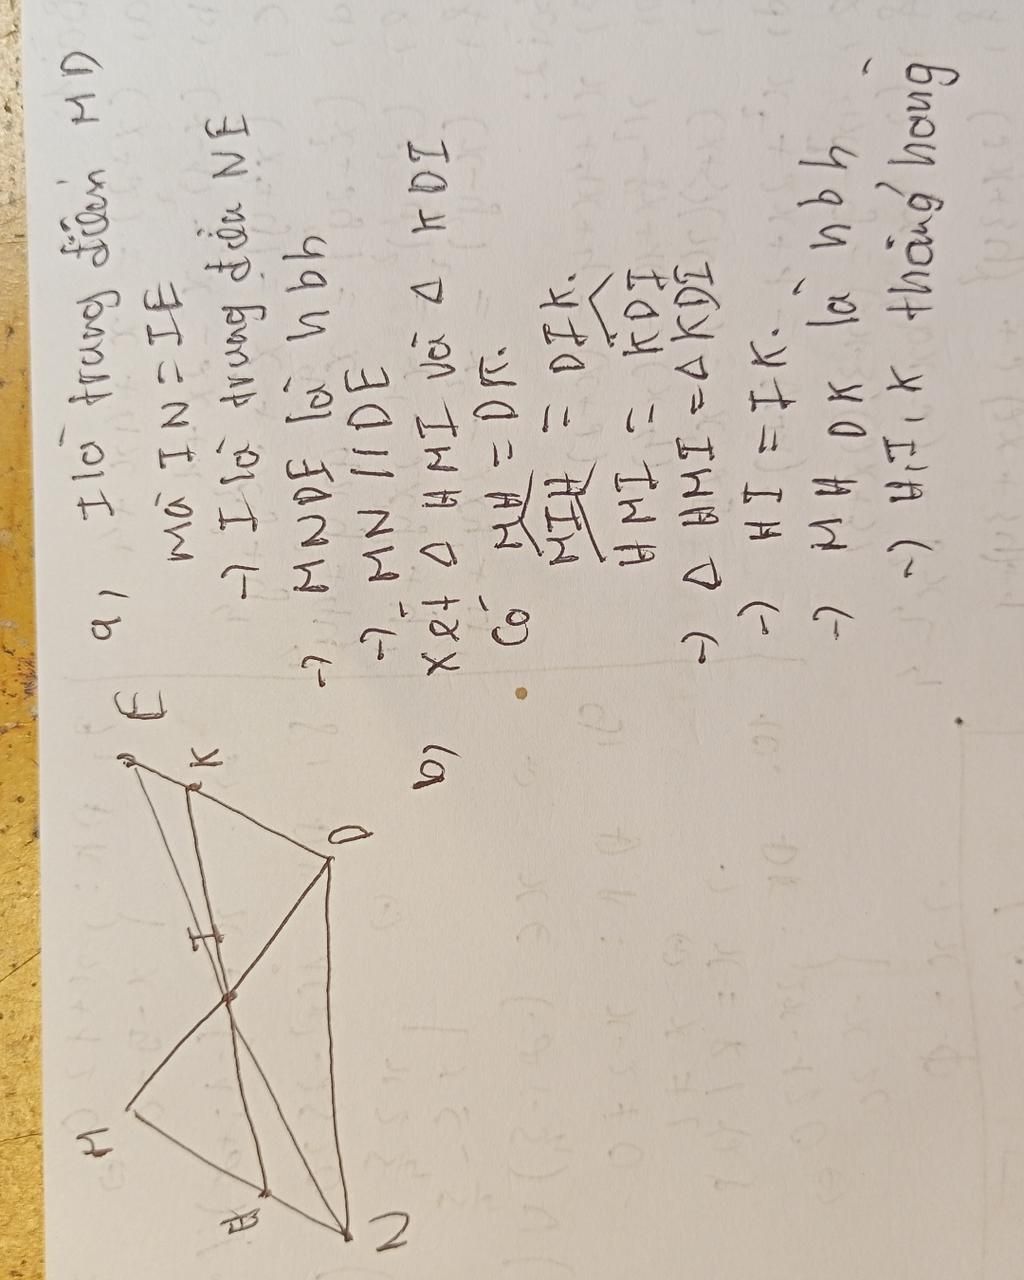 M
H
N
I
D
K
E
a) I là trung điểm MD
mà IN = IE
→ I là trung điểm NE
→ MNDE là hbh
→ MN // DE
b) Xét Δ HMI và Δ KDI
Có MH = DK.
MIH = DIK.
HMI = KDI
→ Δ HMI = Δ KDI
→ HI = IK.
→ MHDK là hbh
→ H, I, K thẳng hàng